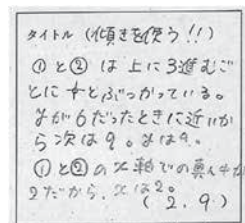 タイトル (傾きを使う!!)
①と②は上に3進むご
とに十とぶつかっている。
yが6だったときに近いか
ら次は9。yは9。
①と②のx軸での真ん中が
2だから、xは2。
(2.9)